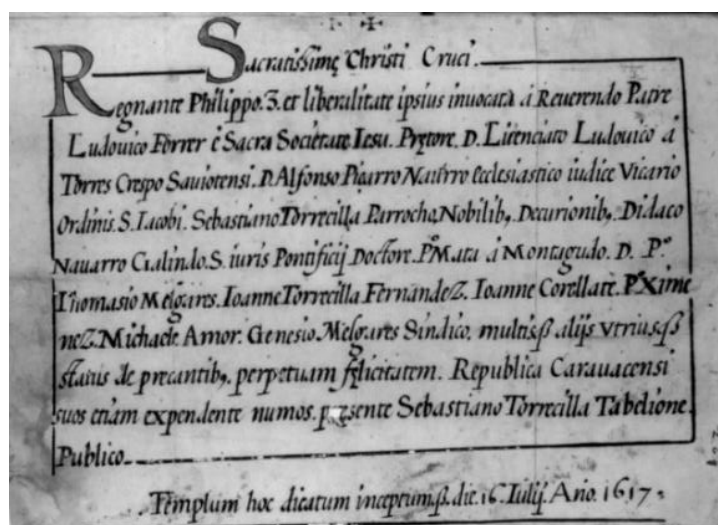 Sacratissimę Christi Cruci.
Regnante Philippo.3. et liberalitate ipsius inuocata á Reuerendo Patre
Ludouico Ferrer é Sacra Societate Iesu. Prętore. D. Licenciato Ludouico á
Torres Crespo Saviotensi. D. Alfonso Piçarro Nauarro ecclesiastico iudice Vicario
Ordinis. S. Iacobi. Sebastiano Torrecilla Parrocho, Nobilib, Decurionib, Didaco
Nauarro Galindo. S. iuris Pontificij Doctore. Pº Mata á Montagudo. D. Pº
Thomasio Melgares. Ioanne Torrecilla Fernandez. Ioanne Corellate. Pº Xime
nez. Michaele Amor. Genesio Melgares Sindico, multisqȝ alijs vtriusqȝ
status de precantib, perpetuam fęlicitatem. Republica Carauacensi
suos etiam expendente numos. pręsente Sebastiano Torrecilla Tabelione
Publico.
Templum hoc dicatum inceptumqȝ. die. 16. Iulij. Ano. 1617.